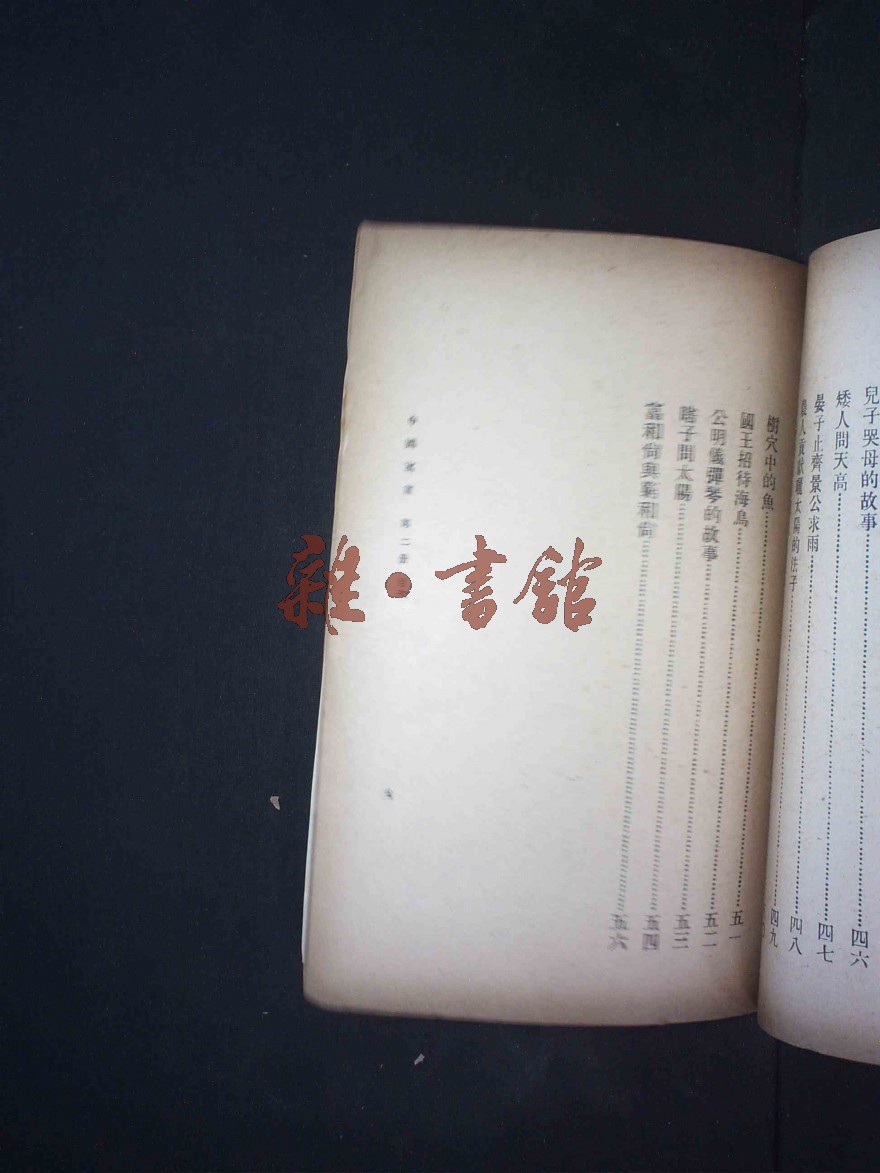 兒子哭母的故事……四六
矮人問天高……四七
晏子止齊景公求雨……四八
人貢獻曬太陽的法子……四九
樹穴中的魚……
國王招待海鳥……五一
公明儀彈琴的故事……五二
瞎子問太陽……五三
富和尚與窮和尚……五六
五四
第二册
雜·書館